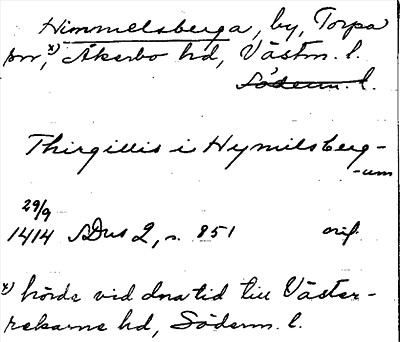 Himmelsberga, by, Torpa
sn, x) Åkerbo hd, Västm. l.
Söderm. l.
Thirgillis i Hymilsberg-
-um
29/9
1414 SDns 2, s. 851 orig.
x) hörde vid dna tid till Väster-
rekarne hd, Söderm. l.